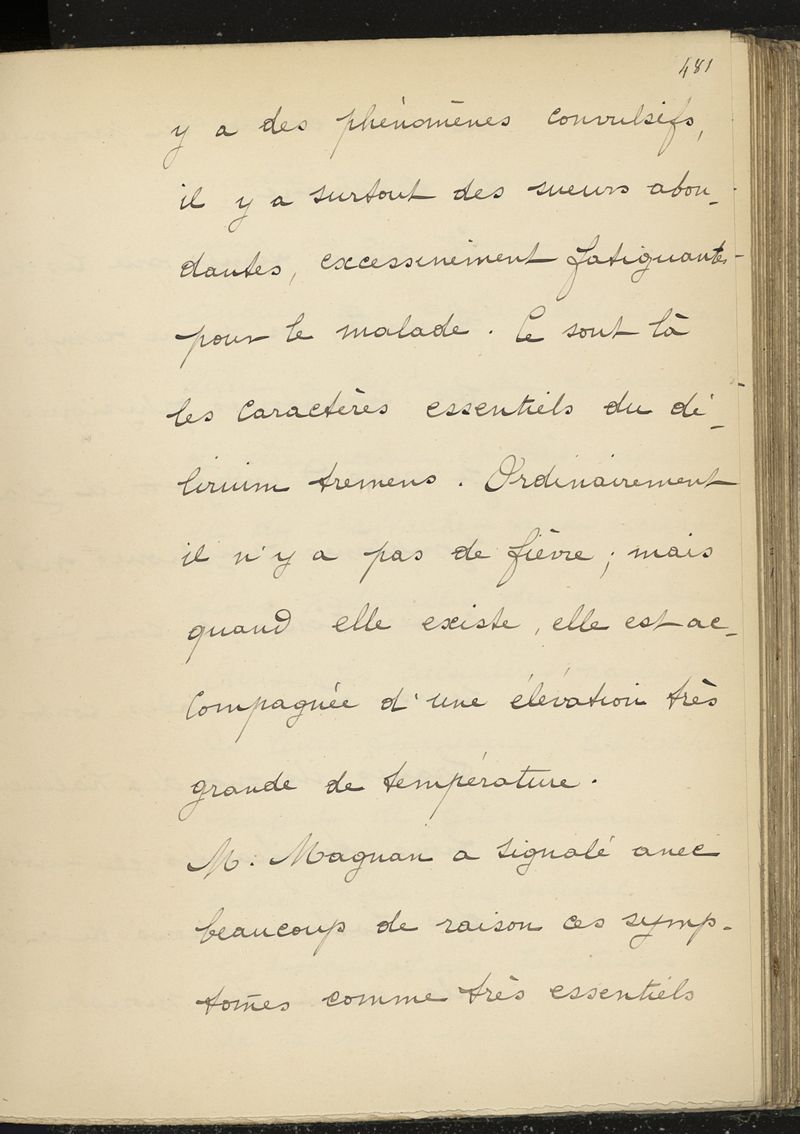 481
y a des phénomènes convulsifs,
il y a surtout des sueurs abon-
dantes, excessivement fatiguantes
pour le malade. Ce sont là
les caractères essentiels du dé-
lirium tremens. Ordinairement
il n'y a pas de fièvre; mais
quand elle existe, elle est ac-
compagnée d'une élévation très
grande de température.
M. Magnan a signalé avec
beaucoup de raison ces symp-
tomes comme très essentiels